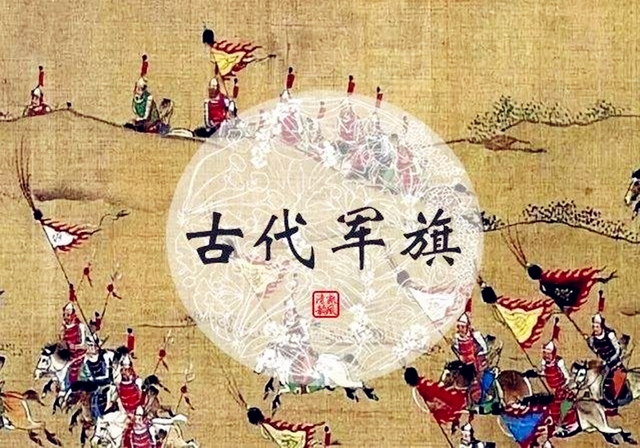 古代军旗